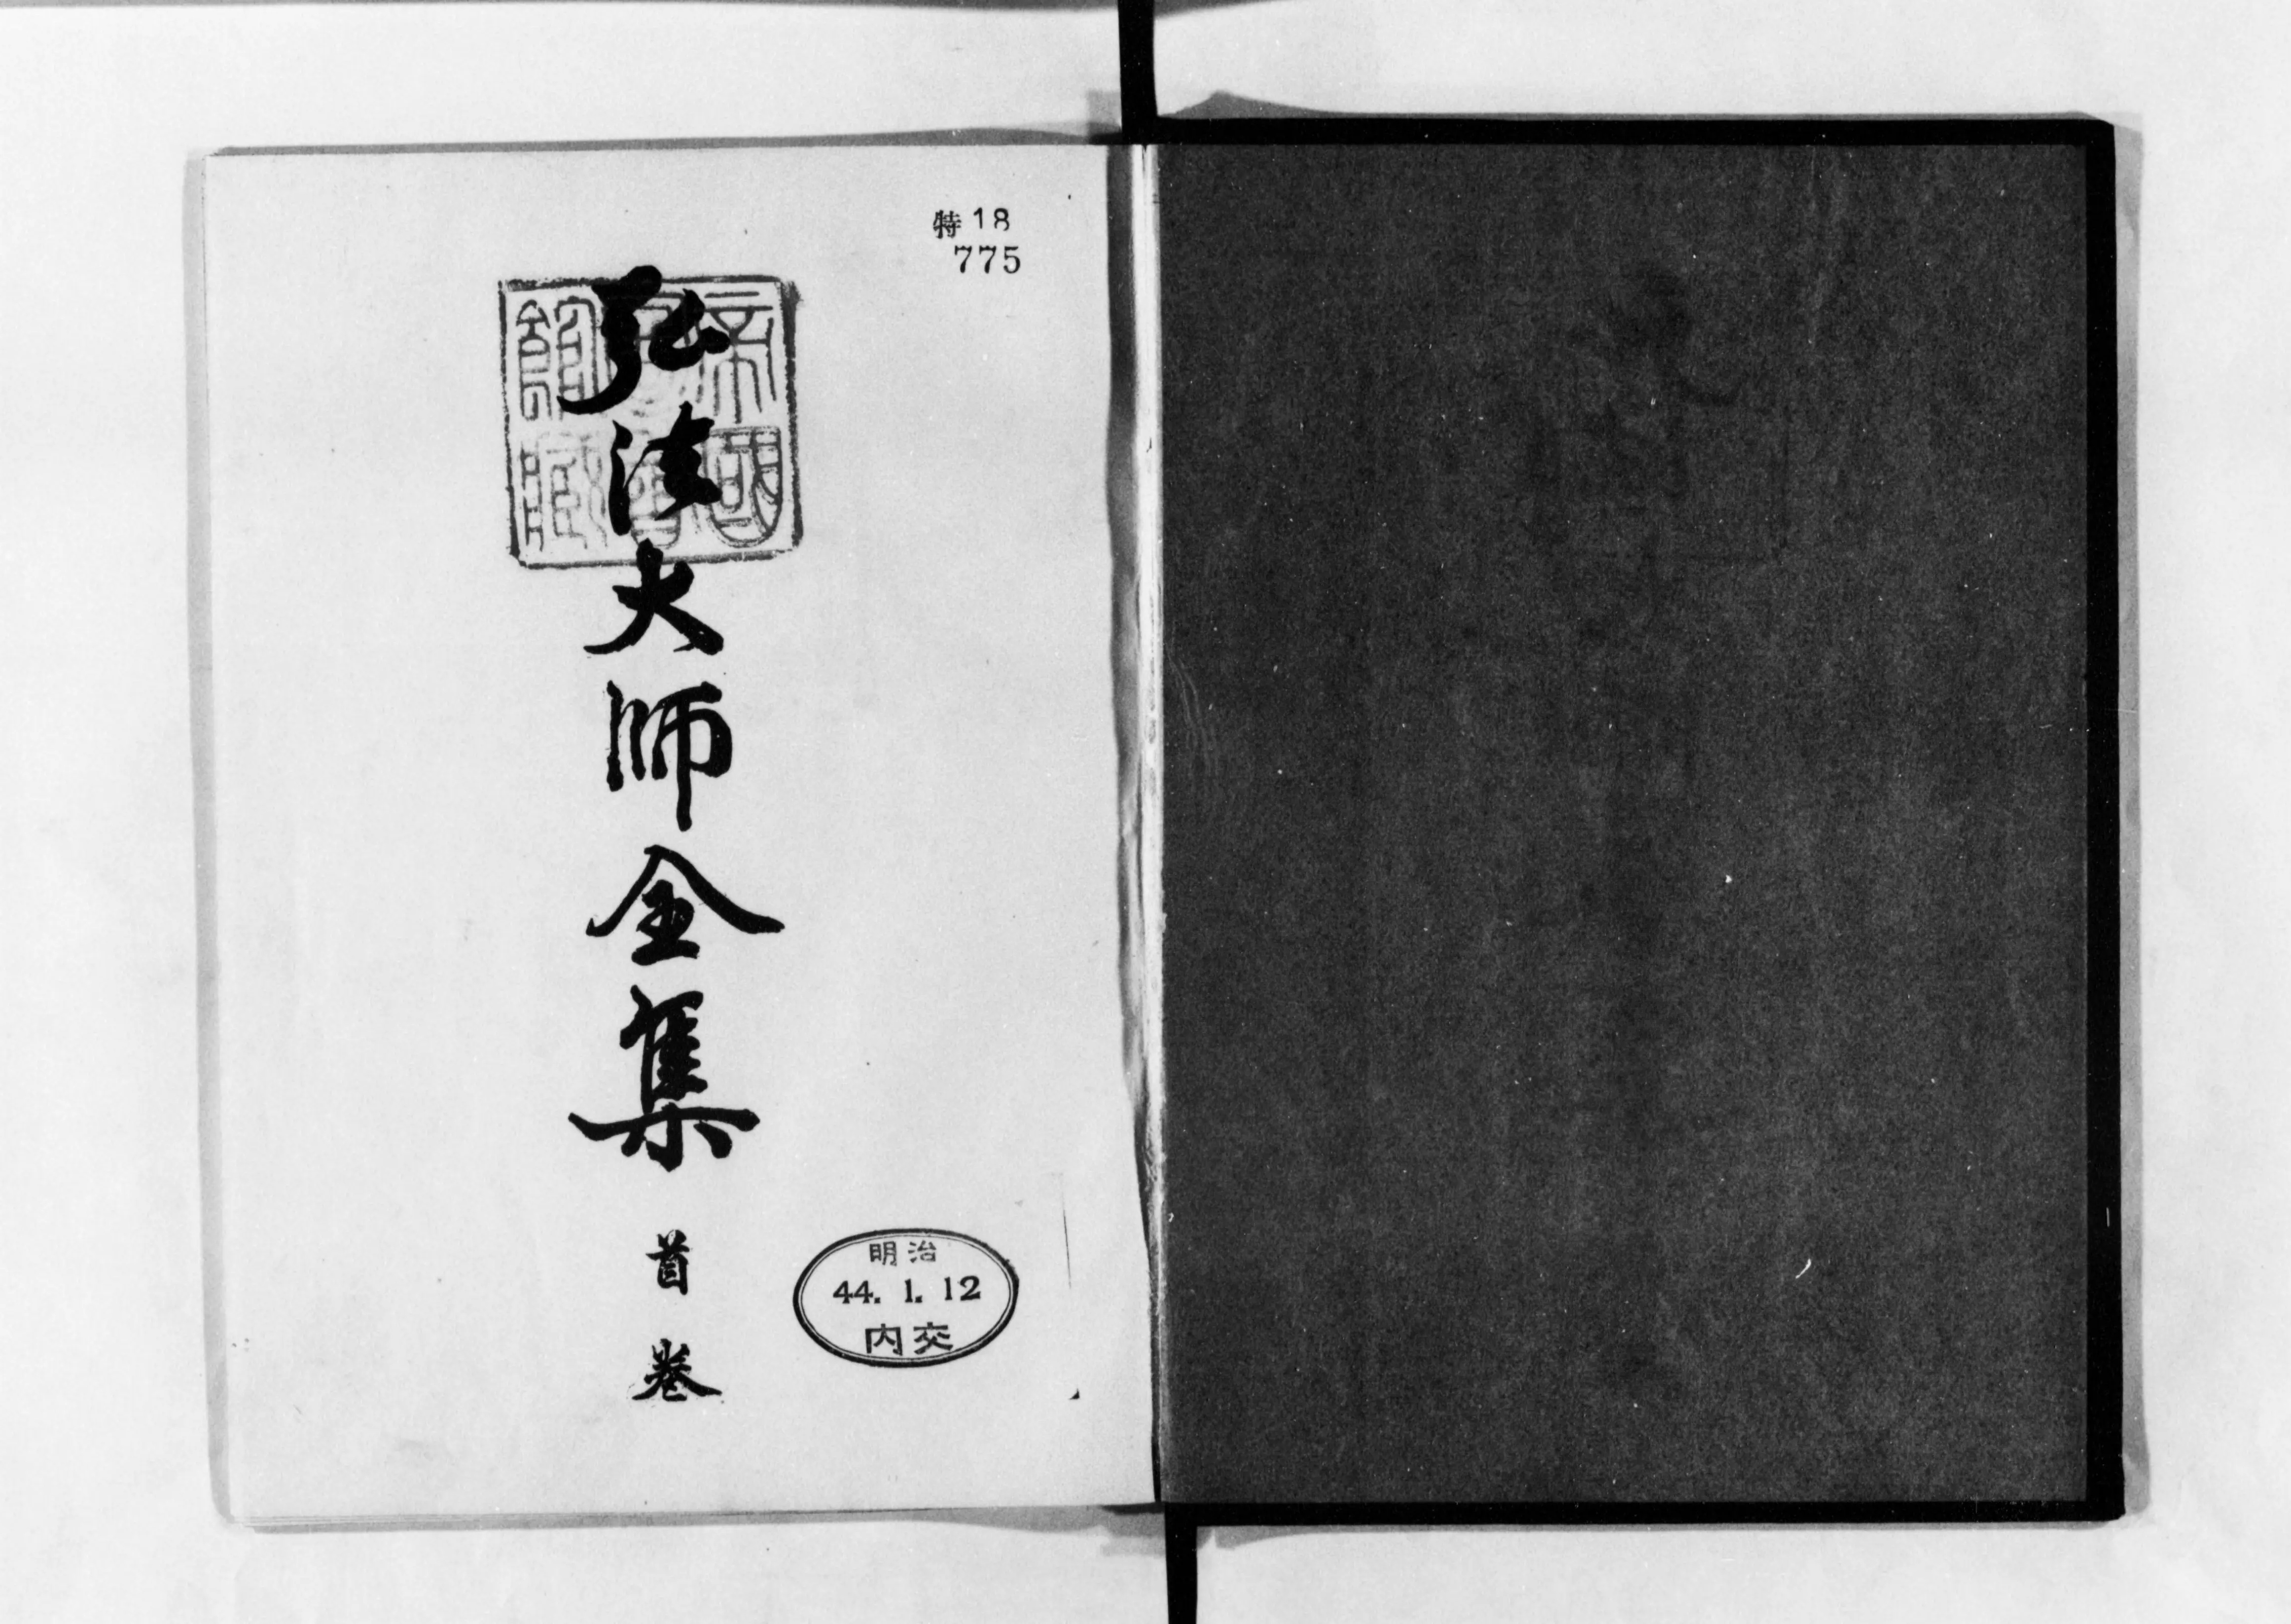 特18
775
弘法大師全集
首卷
帝國
圖書
館藏
明治
44. 1. 12
内交